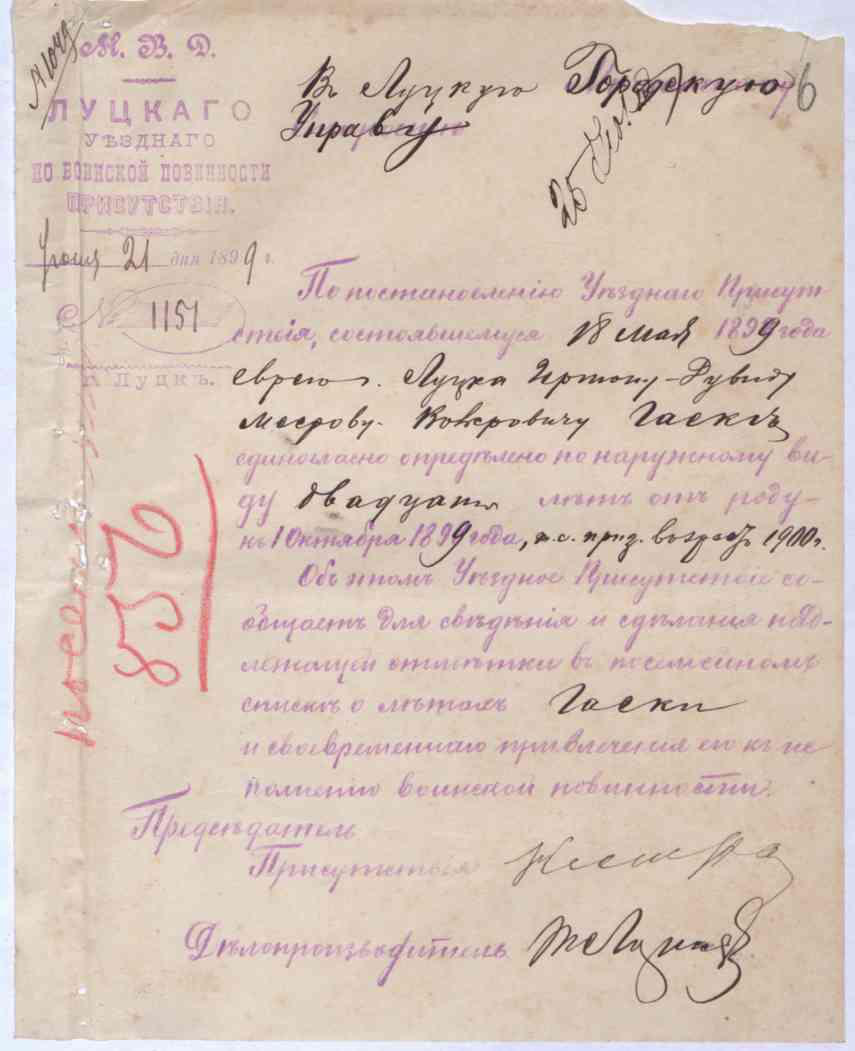 М. В. Д.
ЛУЦКАГО
УѢЗДНАГО
ПО ВОИНСКОЙ ПОВИННОСТИ
ПРИСУТСТВІЯ.
21 дня 1899 г.
№ 1151
г. ЛУЦКЪ.
Въ Луцкую Городскую
Управу
6
25
По постановленію Уѣзднаго Присут-
ствія, состоявшемуся 18 мая 1899 года
еврею г. Луцка
Гаскѣ
единогласно опредѣлено по наружному ви-
ду двадцать лѣтъ отъ роду
къ 1 Октября 1899 года, т. е. приз. возрастъ 1900 г.
Объ этомъ Уѣздное Присутствіе со-
общаетъ для свѣдѣнія и сдѣланія надле-
жащей отмѣтки въ посемейномъ
спискѣ о лѣтахъ Гаски
и своевременнаго привлеченія его къ ис-
полненію воинской повинности.
Предсѣдатель
Присутствія
Дѣлопроизводитель